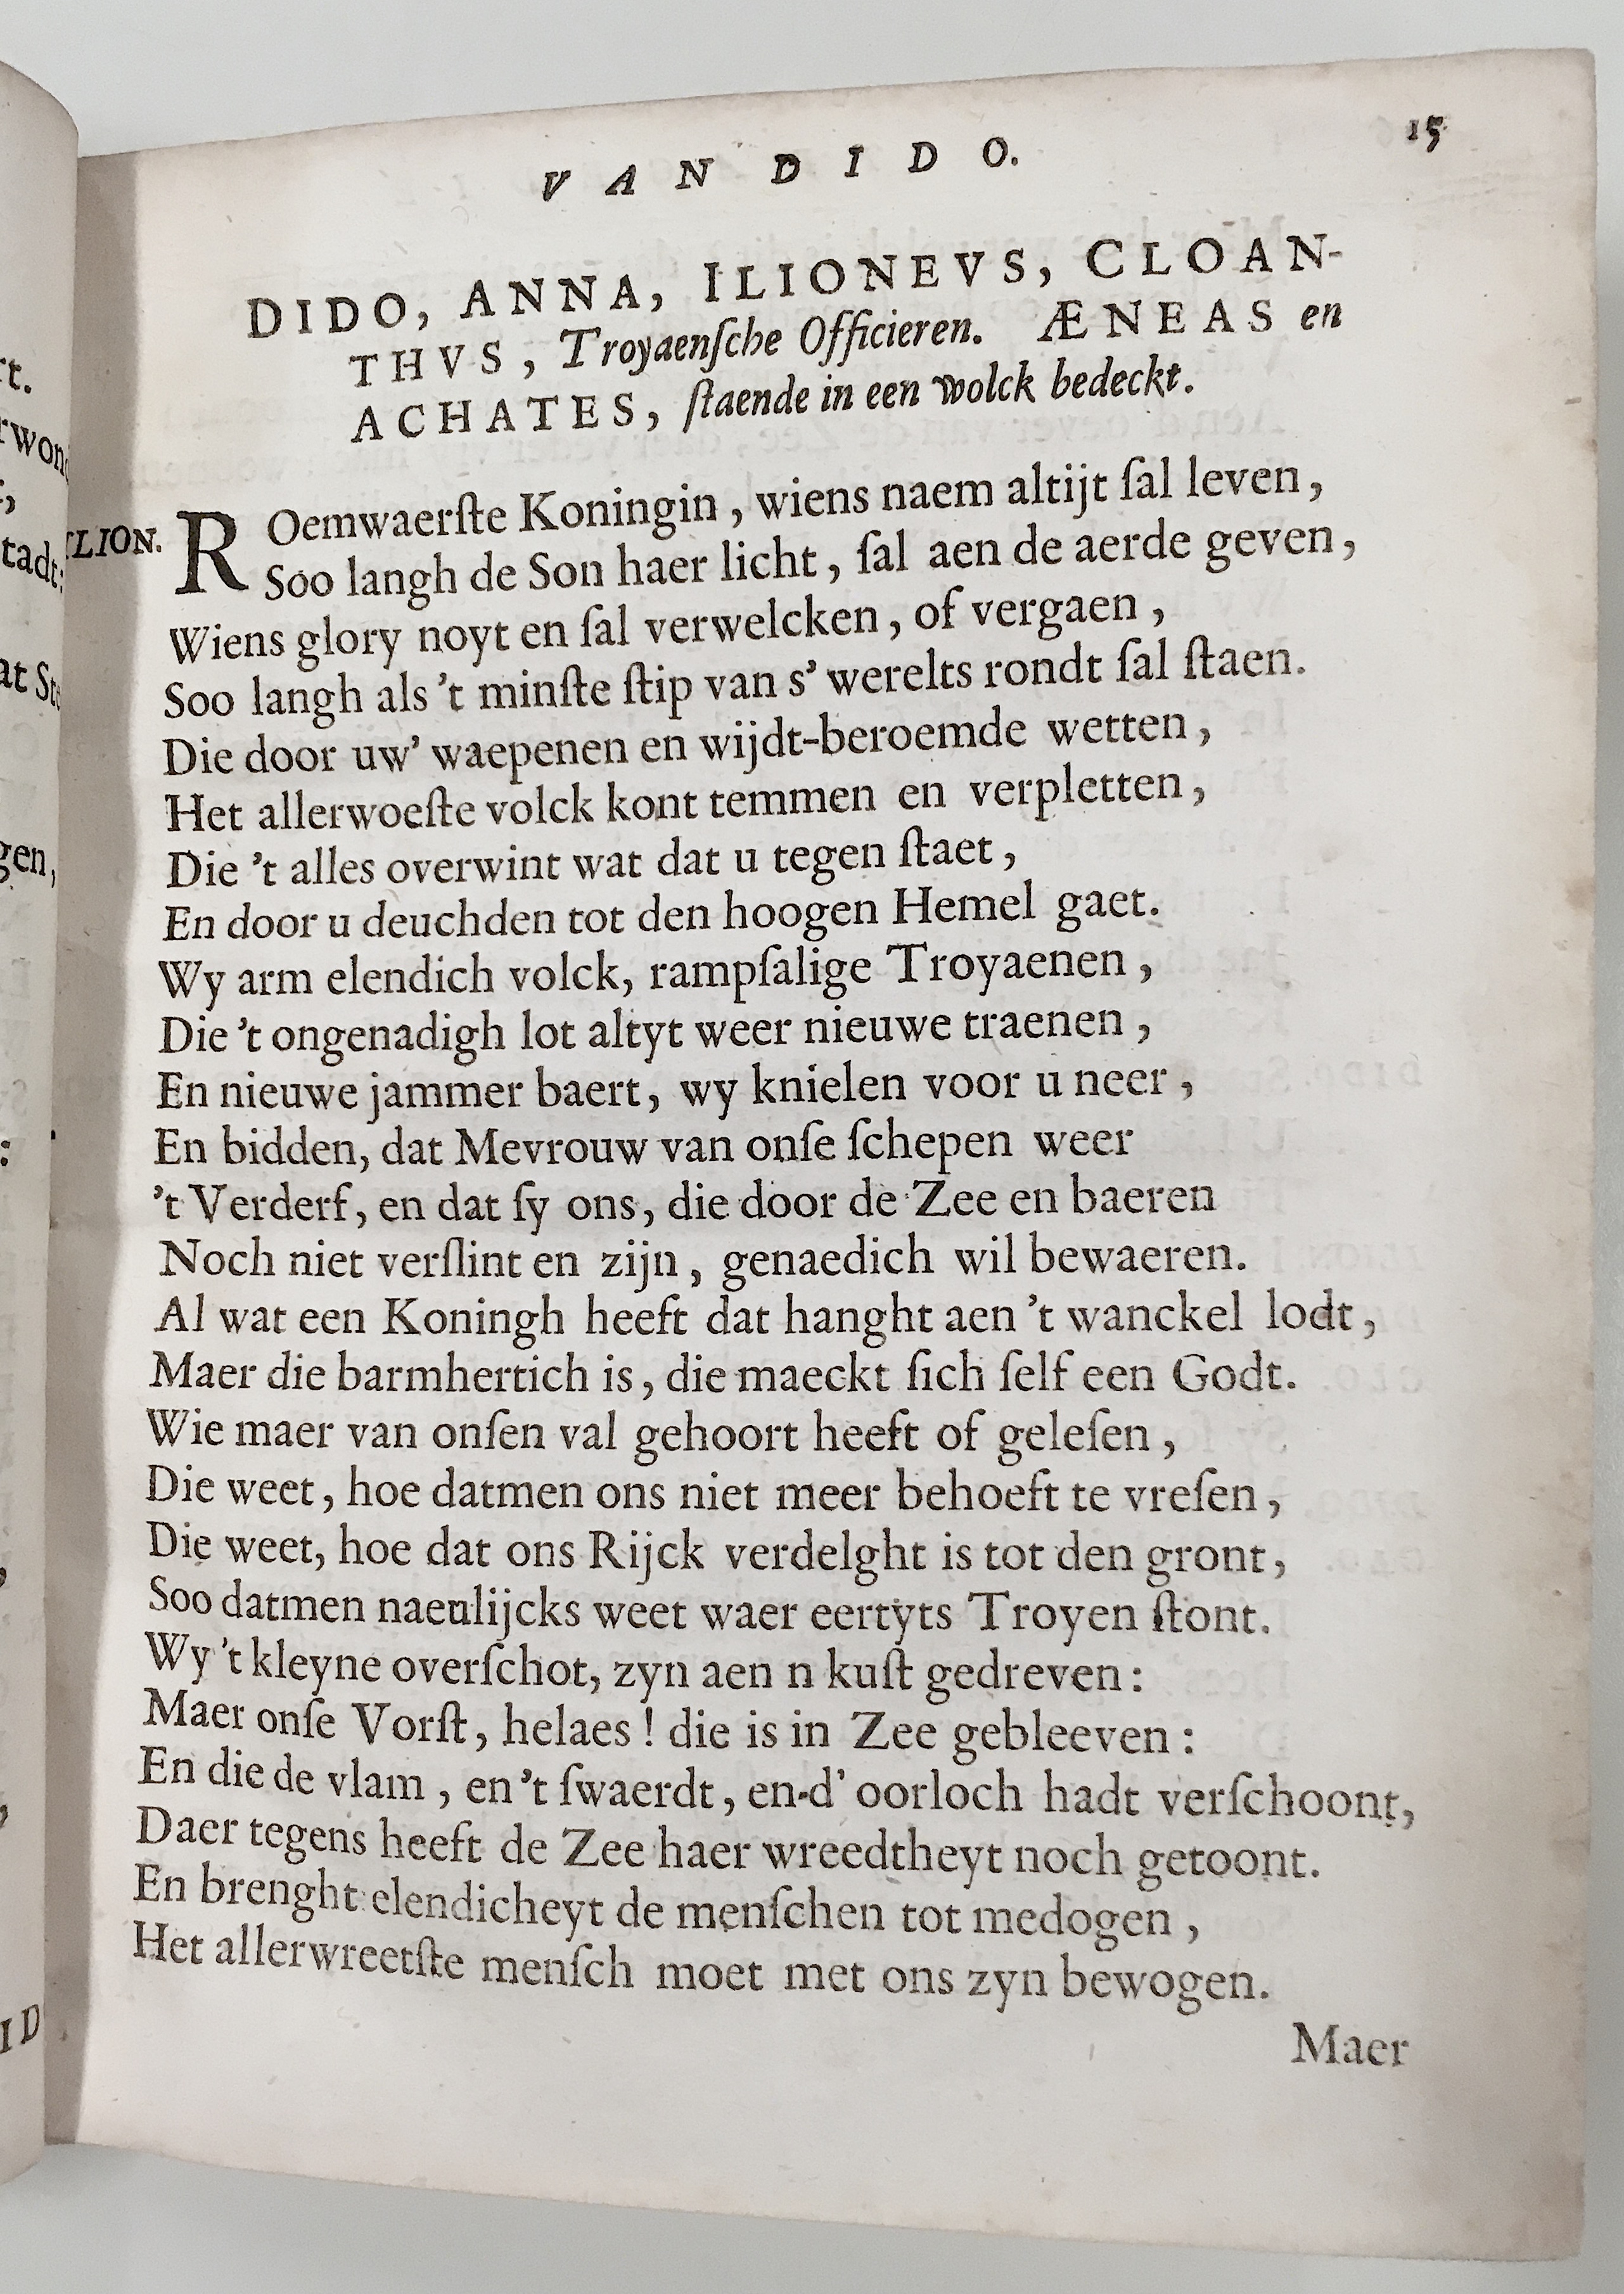 VAN DIDO.
15
DIDO, ANNA, ILIONEVS, CLOAN-
THVS, Troyaenſche Officieren. ÆNEAS en
ACHATES, ſtaende in een wolck bedeckt.
ILION. ROemwaerſte Koningin, wiens naem altijt ſal leven,
Soo langh de Son haer licht, ſal aen de aerde geven,
Wiens glory noyt en ſal verwelcken, of vergaen,
Soo langh als 't minſte ſtip van s' werelts rondt ſal ſtaen.
Die door uw' waepenen en wijdt-beroemde wetten,
Het allerwoeſte volck kont temmen en verpletten,
Die 't alles overwint wat dat u tegen ſtaet,
En door u deuchden tot den hoogen Hemel gaet.
Wy arm elendich volck, rampſalige Troyaenen,
Die 't ongenadigh lot altyt weer nieuwe traenen,
En nieuwe jammer baert, wy knielen voor u neer,
En bidden, dat Mevrouw van onſe ſchepen weer
't Verderf, en dat ſy ons, die door de Zee en baeren
Noch niet verſlint en zijn, genaedich wil bewaeren.
Al wat een Koningh heeft dat hanght aen 't wanckel lodt,
Maer die barmhertich is, die maeckt ſich ſelf een Godt.
Wie maer van onſen val gehoort heeft of geleſen,
Die weet, hoe datmen ons niet meer behoeft te vreſen,
Die weet, hoe dat ons Rijck verdelght is tot den gront,
Soo datmen naeulijcks weet waer eertyts Troyen ſtont.
Wy 't kleyne overſchot, zyn aen n kuſt gedreven:
Maer onſe Vorſt, helaes! die is in Zee gebleeven:
En die de vlam, en 't ſwaerdt, en-d' oorloch hadt verſchoont,
Daer tegens heeft de Zee haer wreedtheyt noch getoont.
En brenght elendicheyt de menſchen tot medogen,
Het allerwreetſte menſch moet met ons zyn bewogen.
Maer